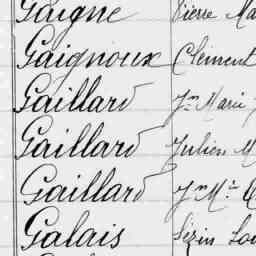 Gaigne Pierre Ma
Gaignoux Clément
Gaillard Jn Marie
Gaillard Julien M
Gaillard Jn Mie
Galais Sézin Lou